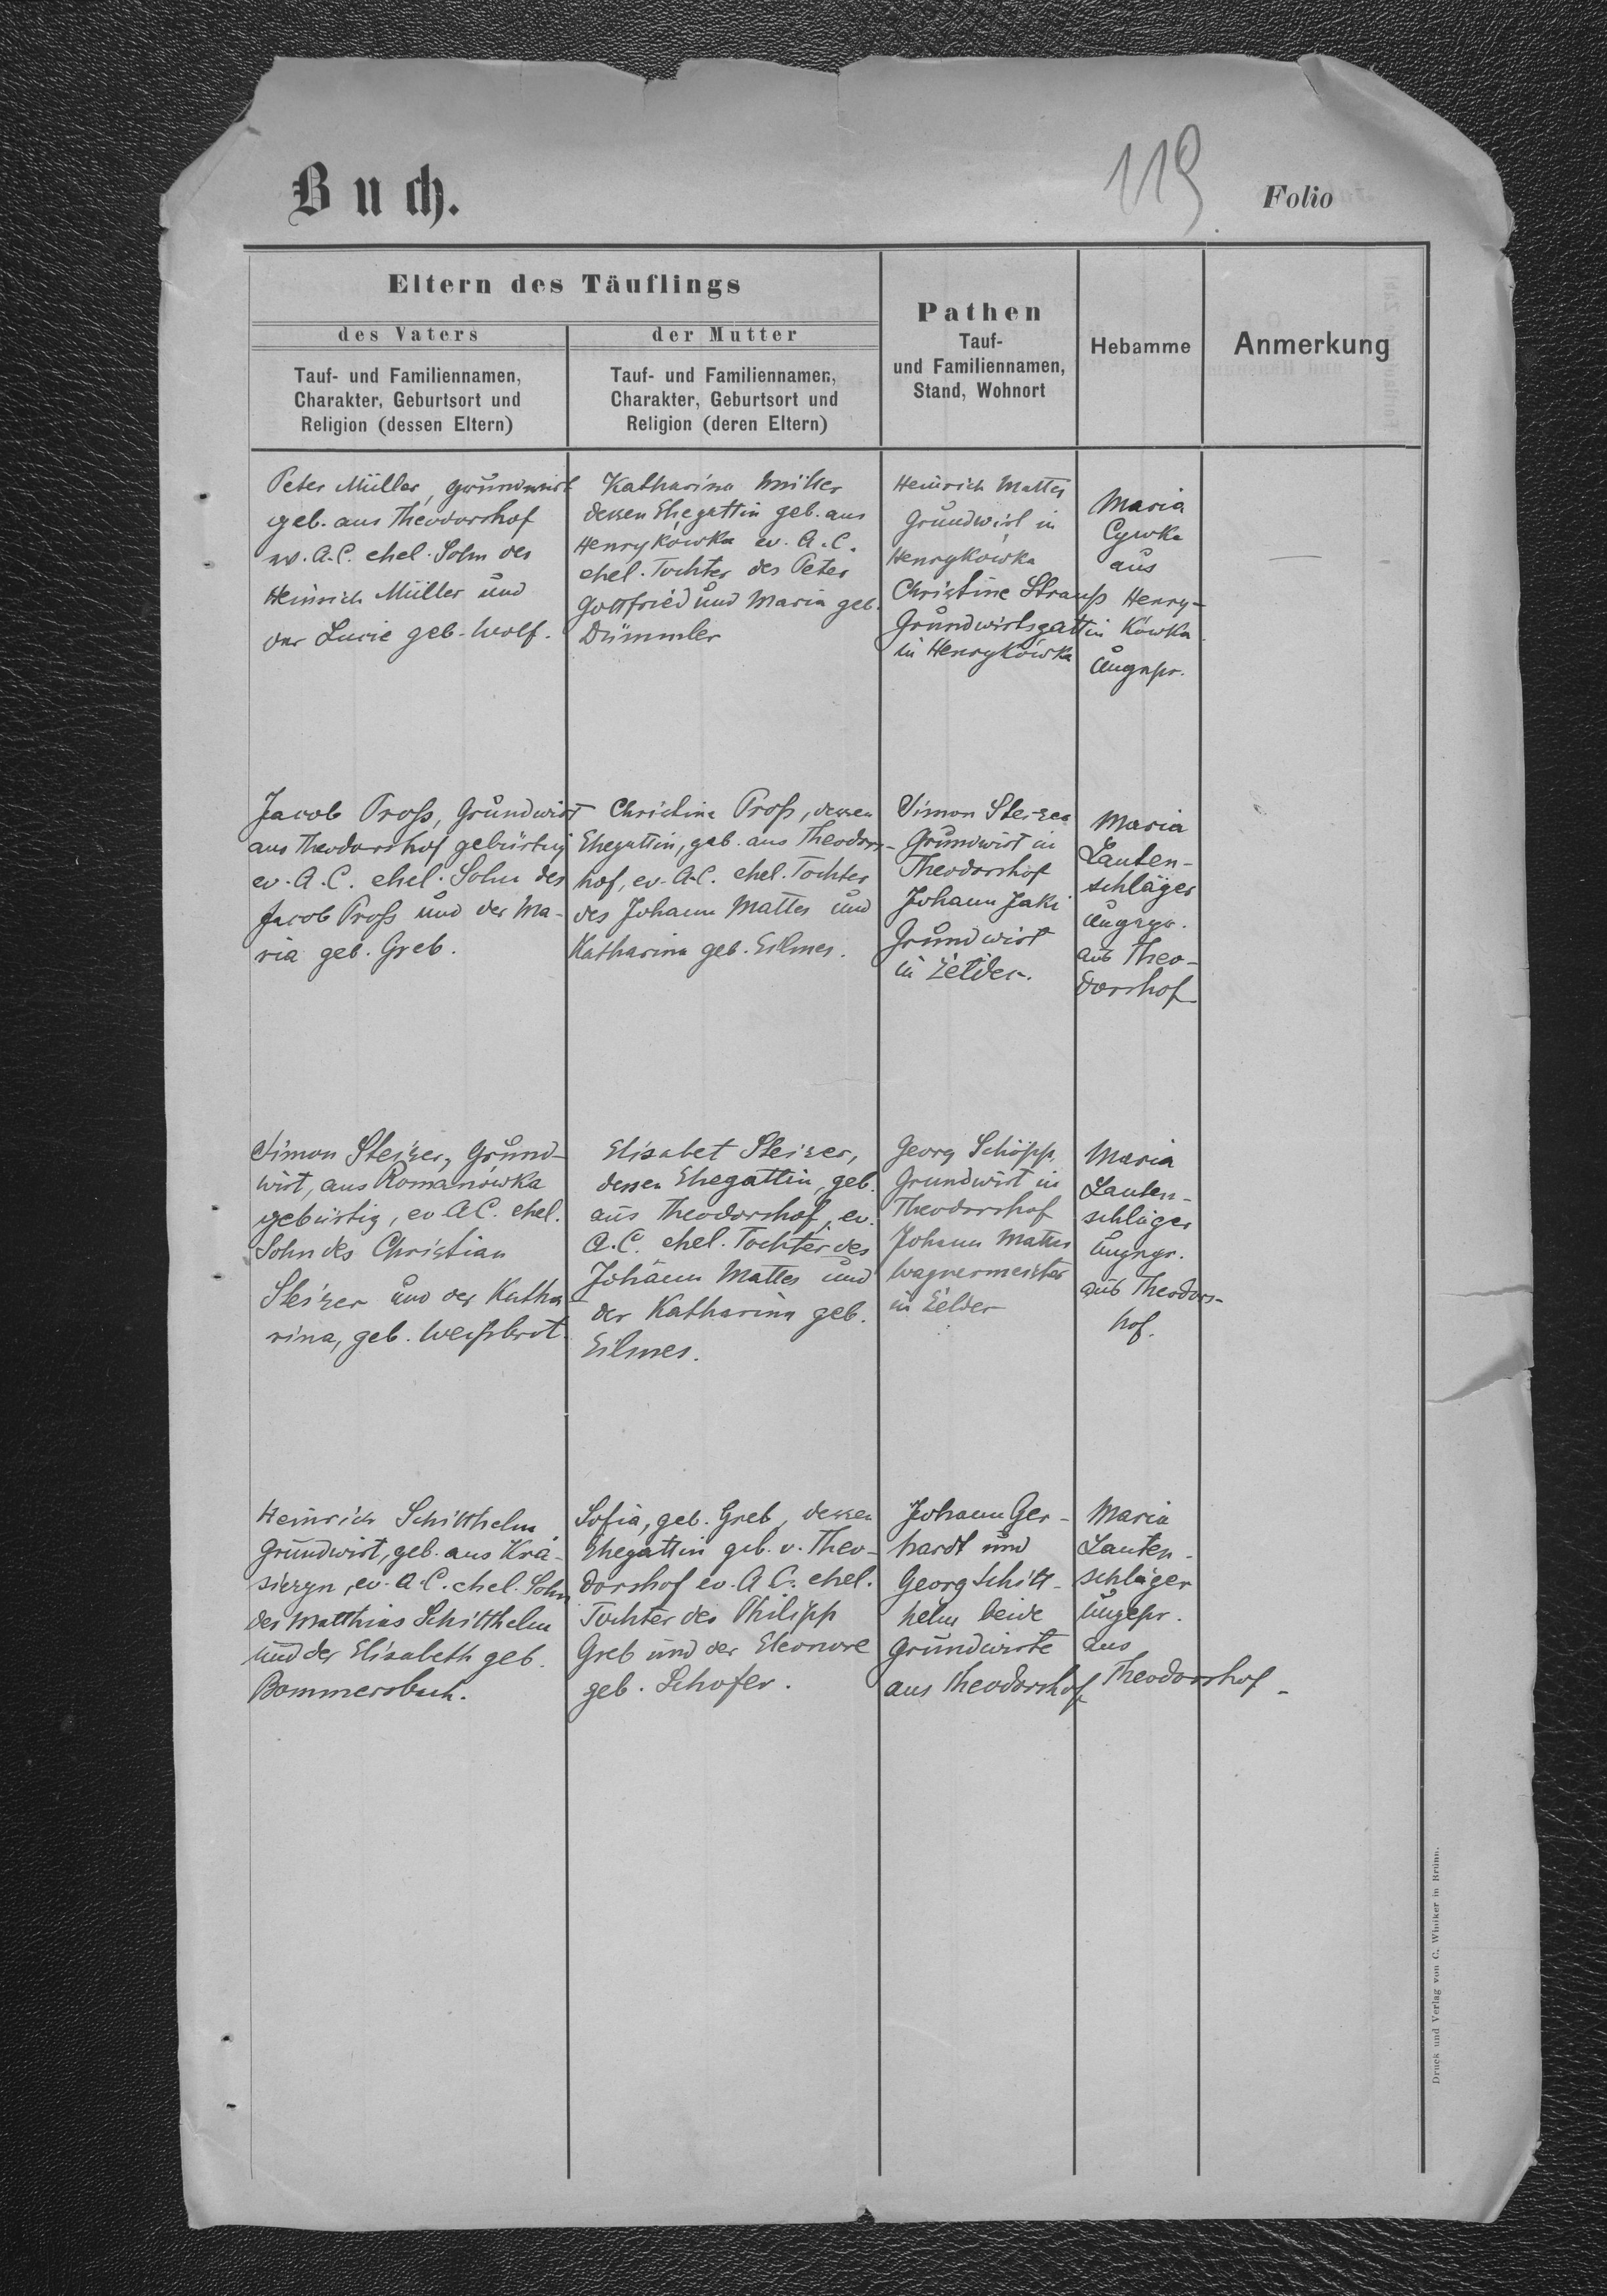 Buch.
119
Folio
Eltern des Täuflings
des Vaters
der Mutter
Tauf- und Familiennamen,
Charakter, Geburtsort und
Religion (dessen Eltern)
Tauf- und Familiennamen,
Charakter, Geburtsort und
Religion (deren Eltern)
Pathen
Tauf-
und Familiennamen,
Stand, Wohnort
Hebamme
Anmerkung
Peter Müller, Grundwirt
geb. aus Theodorshof
ev. A.C. ehel. Sohn des
Heinrich Müller und
der Lucie geb. Wolf.
Katharina Müller
dessen Ehegattin geb. aus
Henrykówka ev. A.C.
ehel. Tochter des Peter
Gottfried und Maria geb.
Dümmler
Heinrich Mattes
Grundwirt in
Henrykówka
Christine Strauß
Grundwirtsgattin
in Henrykówka
Maria
Cywka
aus
Henry-
kówka
Ungepr.
Jacob Proß, Grundwirt
aus Theodorshof gebürtig
ev. A.C. ehel. Sohn des
Jacob Proß und der Ma-
ria geb. Greb.
Christina Proß, dessen
Ehegattin, geb. aus Theodors-
hof, ev. A.C. ehel. Tochter
des Johann Mattes und
Katharina geb. Eilmes.
Simon Steizer
Grundwirt in
Theodorshof
Johann Jaki
Grundwirt
in Żeldec.
Maria
Lauten-
schläger
Ungepr.
aus Theo-
dorshof
Simon Steizer, Grund-
wirt, aus Romanówka
gebürtig, ev A.C. ehel.
Sohn des Christian
Steizer und der Katha-
rina, geb. Weißbrot.
Elisabet Steizer,
dessen Ehegattin, geb.
aus Theodorshof, ev.
A.C. ehel. Tochter des
Johann Mattes und
der Katharina geb.
Eilmes.
Georg Schöpp,
Grundwirt in
Theodorshof
Johann Mattes
Wagnermeister
in Żeldec
Maria
Lauten-
schläger
Ungepr.
aus Theodors-
hof.
Heinrich Schitthelm
Grundwirt, geb. aus Kra-
siczyn, ev. A.C. ehel. Sohn
des Matthias Schitthelm
und der Elisabeth geb.
Bommersbach.
Sofia, geb. Greb, dessen
Ehegattin geb. v. Theo-
dorshof ev. A.C. ehel.
Tochter des Philipp
Greb und der Eleonore
geb. Schofer.
Johann Ger-
hardt und
Georg Schitt-
helm beide
Grundwirte
aus Theodorshof
Maria
Lauten-
schläger
Ungepr.
aus
Theodorshof
Druck und Verlag von C. Winiker in Brünn.